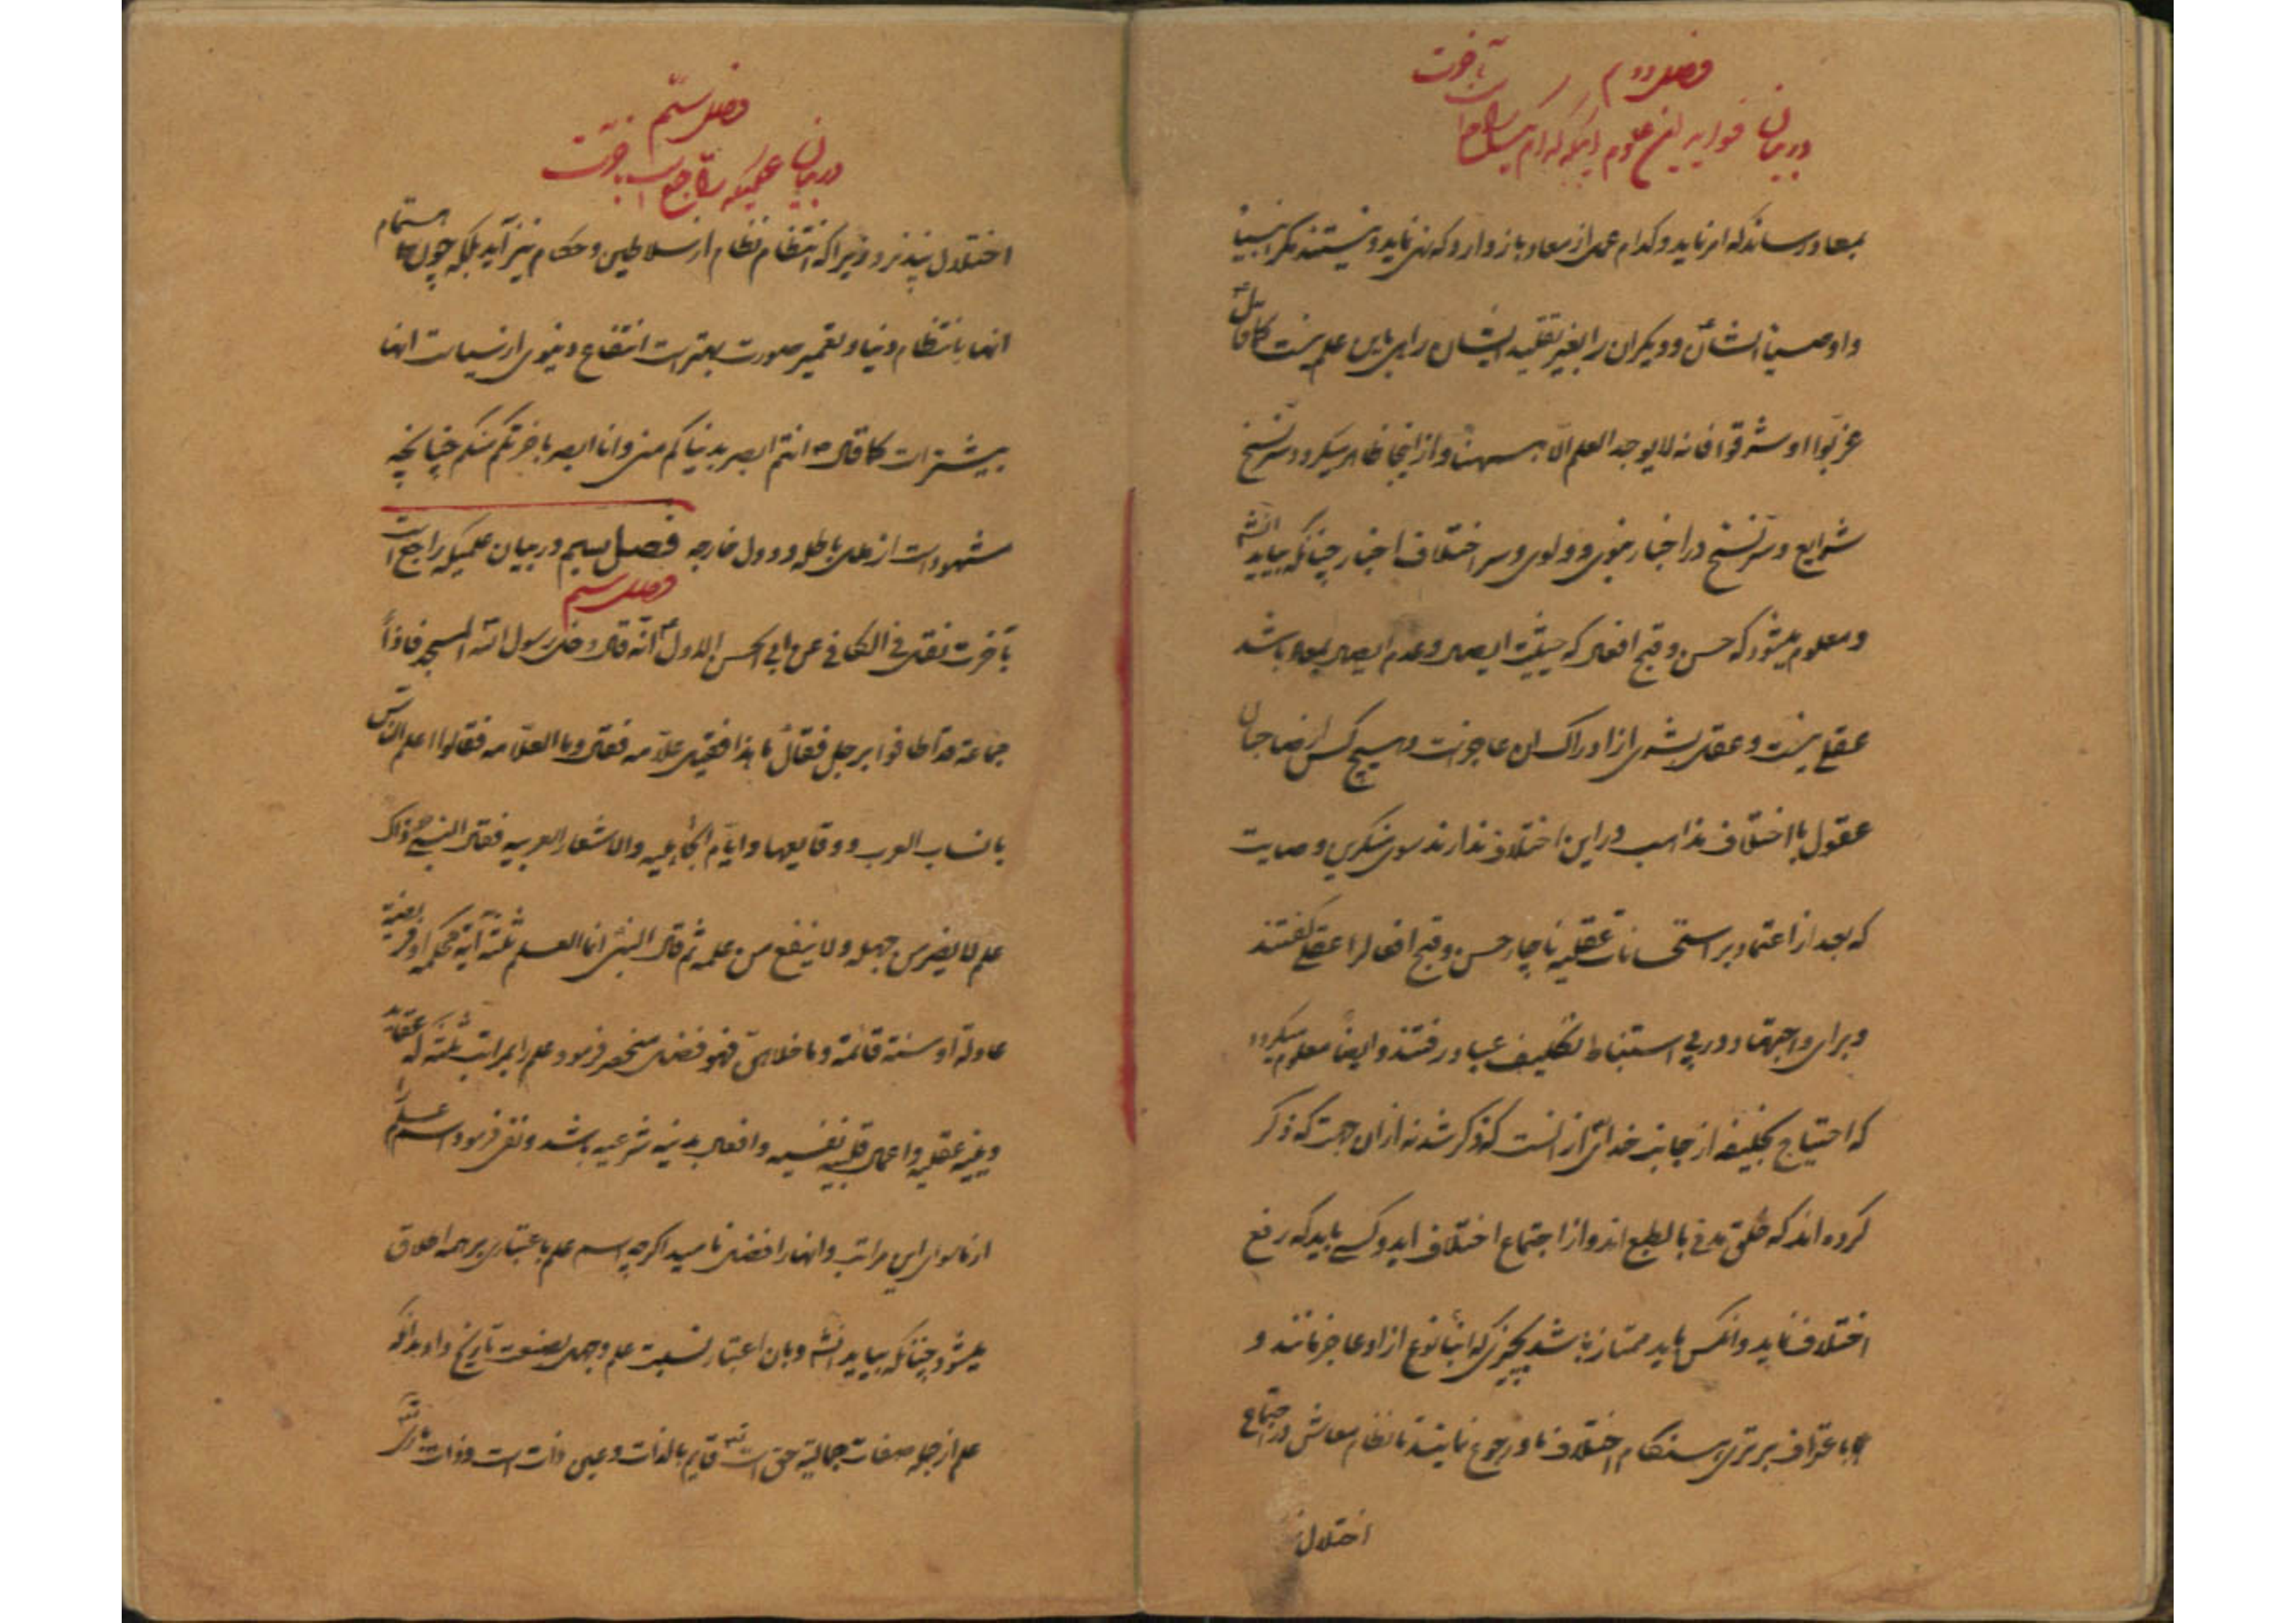 فصل دوم
در بیان
بمعاد رساند که امر نماید و کدام عمل از معاد باز دارد که نهی نماید و نیستند مگر انبیا
و اوصیا ایشان و دیگران را بغیر تقلید ایشان راهی باین علم نیست کما قال
غربوا او شرقوا فانه لا یوجد العلم الا ههنا و از اینجا ظاهر میگردد سر نسخ
شرایع و سر نسخ در اخبار نبوی و ولوی و سر اختلاف اخبار چنانکه بیاید انشه
و معلوم میشود که حسن و قبح افعال که حیثیت ایصال و عدم ایصال بمعاد باشد
عقلی نیست و عقل بشری از ادراک ان عاجز است و هیچ کس از صاحبان
عقول با اختلاف مذاهب در این اختلاف ندارند سوی منکرین وصایت
که بعد از اعتماد بر استحسانات عقلیه ناچار حسن و قبح افعال را عقلی گفتند
و برای و اجتهاد در پی استنباط تکلیف عباد رفتند و ایضا معلوم میگردد
که احتیاج بخلیفه از جانب خدای از انست که ذکر شد نه از ان جهت که ذکر
کرده اند که خلق مدنی بالطبع اند و از اجتماع اختلاف اید و کسی باید که رفع
اختلاف نماید و انکس باید ممتاز باشد بچیزی که ابناء نوع از او عاجز مانند و
باعتراف برتری هنگام اختلاف باو رجوع نمایند تا نظام معاش در اجتماع
اختلال
فصل سیم
در بیان علمیکه راجع است بآخرت
اختلال نپذیرد زیرا که انتظام نظام از سلاطین و حکام نیز آید بلکه چون اهتمام
انها بانتظام دنیا و تعمیر صورت بهتر است انتفاع دنیوی از سیاست انها
بیشتر است کما قال انتم ابصر بدنیاکم منی و انا ابصر باخرتکم منکم چنانچه
مشهود است از ملل باطله و دول خارجه فصل سیم در بیان علمیکه راجع است
فصل سیم
بآخرت نقل فی الکافی عن ابی الحسن الاول انه قال دخل رسول الله المسجد فاذا
جماعة قد اطافوا برجل فقال ما هذا فقیل علامه فقال و ما العلامه فقالوا اعلم الناس
بانساب العرب و وقایعها و ایام الجاهلیه و الاشعار العربیه فقال النبی ذاک
علم لا یضر من جهله و لا ینفع من علمه ثم قال النبی انما العلم ثلثة آیة محکمه او فریضة
عادلة او سنة قائمة و ما خلاهن فهو فضل منحصر فرمود علم را بمراتب ثلثه که عقاید
دینیه عقلیه و اعمال قلبیه نفسیه و افعال بدنیه شرعیه باشد و نفی فرمود اسم علم را
از ماسوای این مراتب و انها را فضل نامید اگرچه اسم علم باعتباری بر همه اطلاق
میشود چنانکه بیاید انشه و بان اعتبار نسبت علم و جهل بصنعت
علم از جمله صفات جمالیه حق است قایم بالذات و عین ذات است و ذات